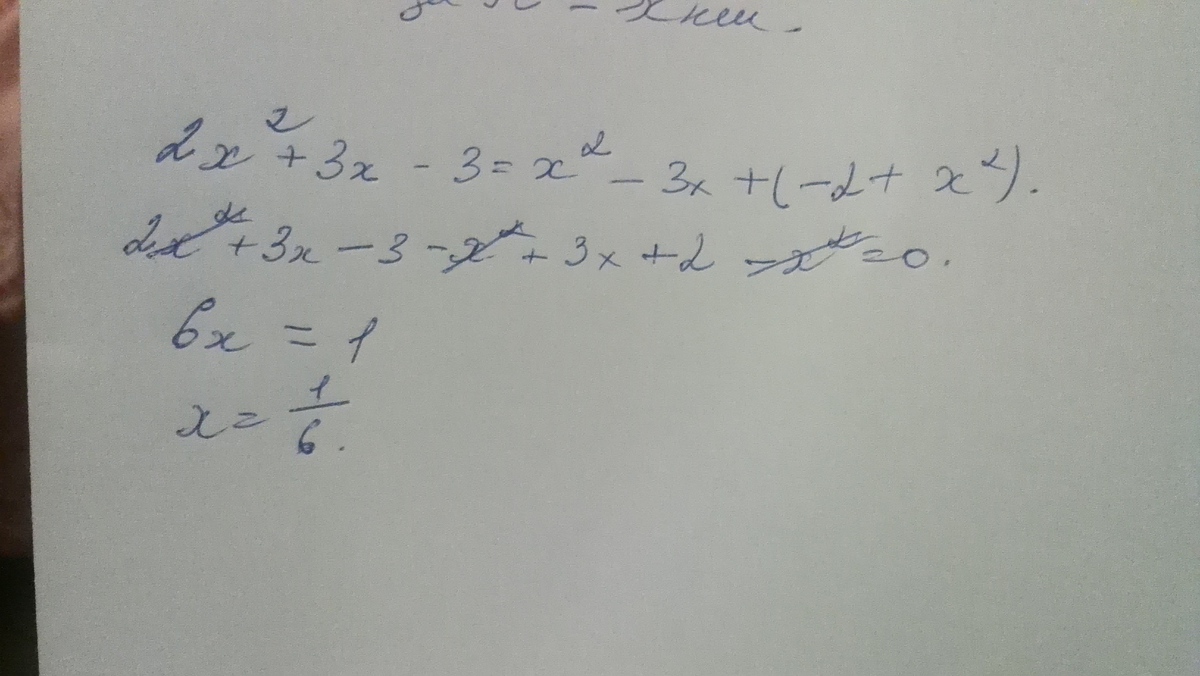 2x² + 3x - 3 = x² - 3x + (-2 + x²).
2x² + 3x - 3 - x² + 3x + 2 - x² = 0.
6x = 1
x = 1/6.